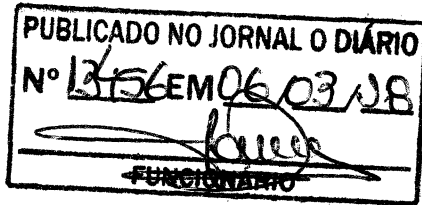 PUBLICADO NO JORNAL O DIÁRIO
Nº 13456 EM 06/03/18
FUNCIONÁRIO